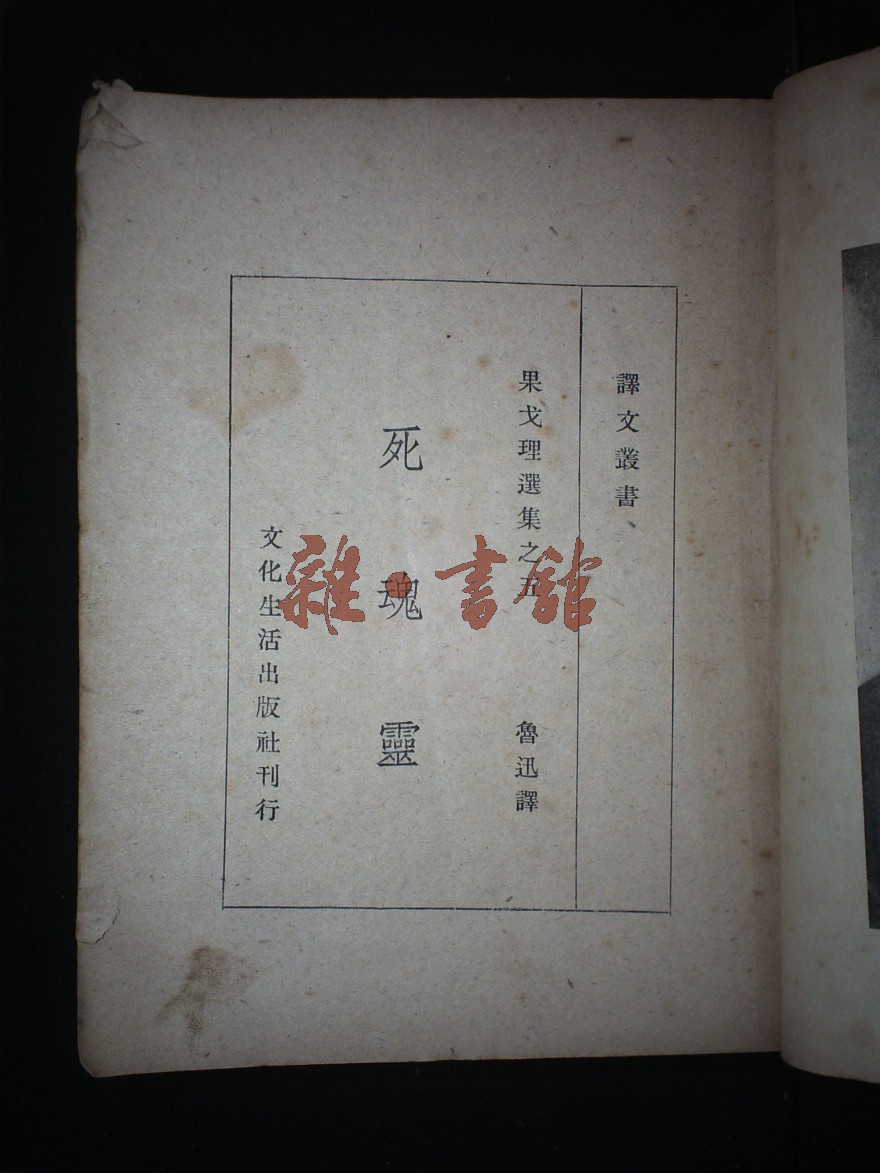 譯文叢書
果戈理選集之五
魯迅譯
死魂靈
文化生活出版社刊行
雜·書館